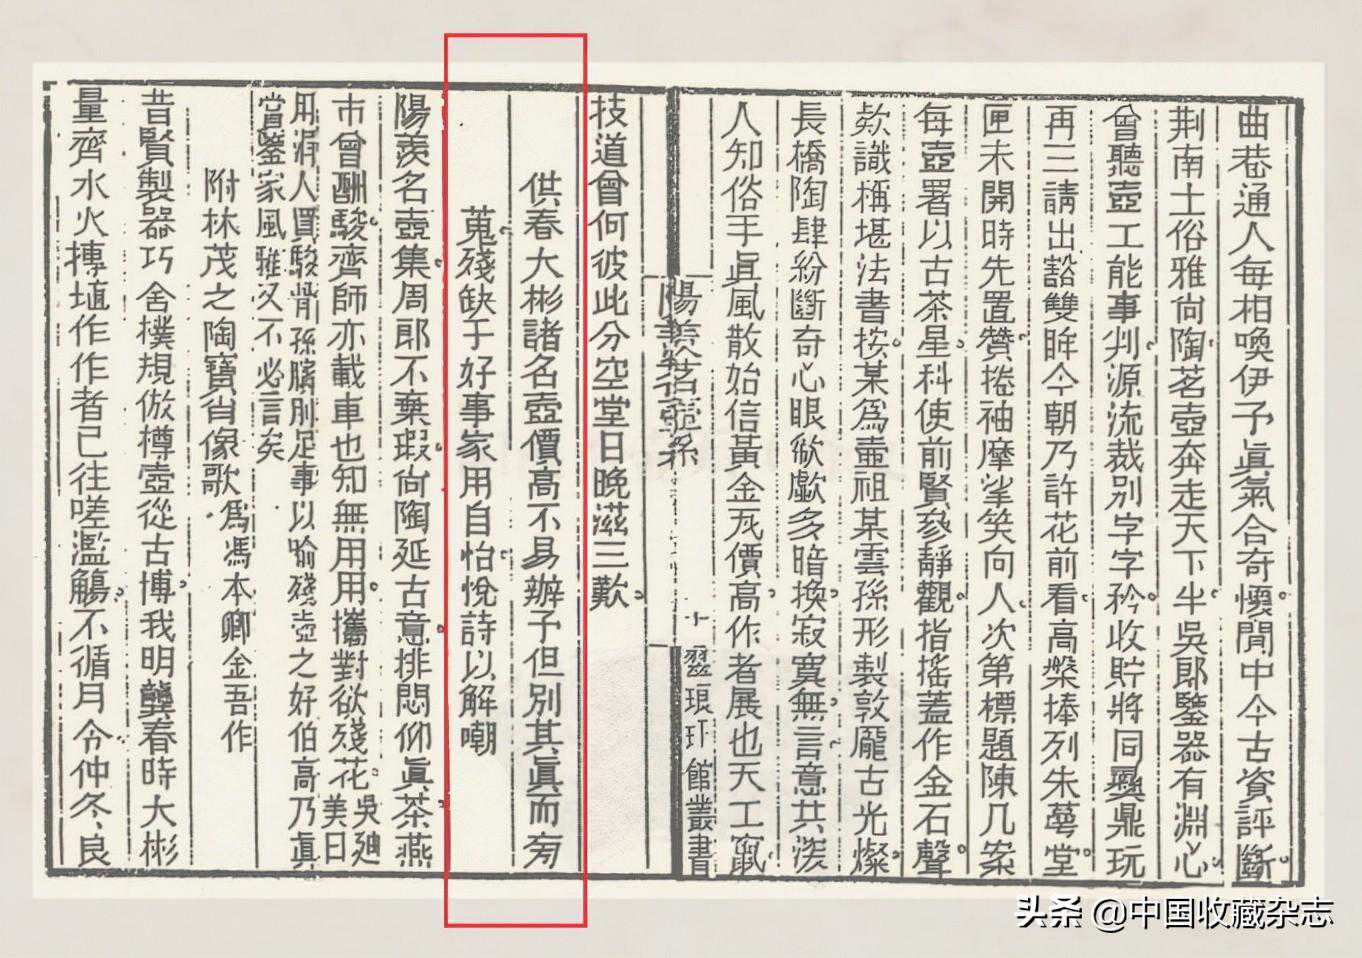 曲巷通人每相喚伊予眞氣合奇懶閒中今古資評斷
荆南土俗雅尙陶茗壺奔走天下半吳郎鑒器有淵心
曾聽壺工能事判源流裁别字字矜收貯將同彞鼎玩
再三請出豁雙眸今朝乃許花前看高槃捧列朱萼堂
匣未開時先置贊捲袖摩挲笑向人次第標題陳几案
每壺署以古茶星科使前賢參靜觀指搖蓋作金石聲
欵識稱堪法書按某爲壷祖某雲孫形製敦龎古光燦
長橋陶肆紛斷奇心眼欷歔多暗換寂寞無言意共深
人知俗手眞風散始信黃金瓦價高作者展也天工竄
陽羨茗壺系 十 翠琅玕館叢書
技道曾何彼此分空堂日晚滋三歎
供春大彬諸名壺價高不易辦予但別其眞而旁
蒐殘缺于好事家用自怡悅詩以解嘲
陽羡名壺集周郎不棄瑕尙陶延古意排悶仰眞茶燕
市曾酬駿齊師亦載車也知無用用攜對欲殘花吳廸美曰
用涓人買駿骨孫臏刖足事以喻殘壺之好伯高乃眞
賞鑒家風雅又不必言矣
附林茂之陶寶肖像歌爲馮本卿金吾作
昔賢製器巧舍樸規倣樽壺從古博我明龔春時大彬
量齊水火摶埴作作者已往嗟濫觴不循月令仲冬良
头条 @中国收藏杂志